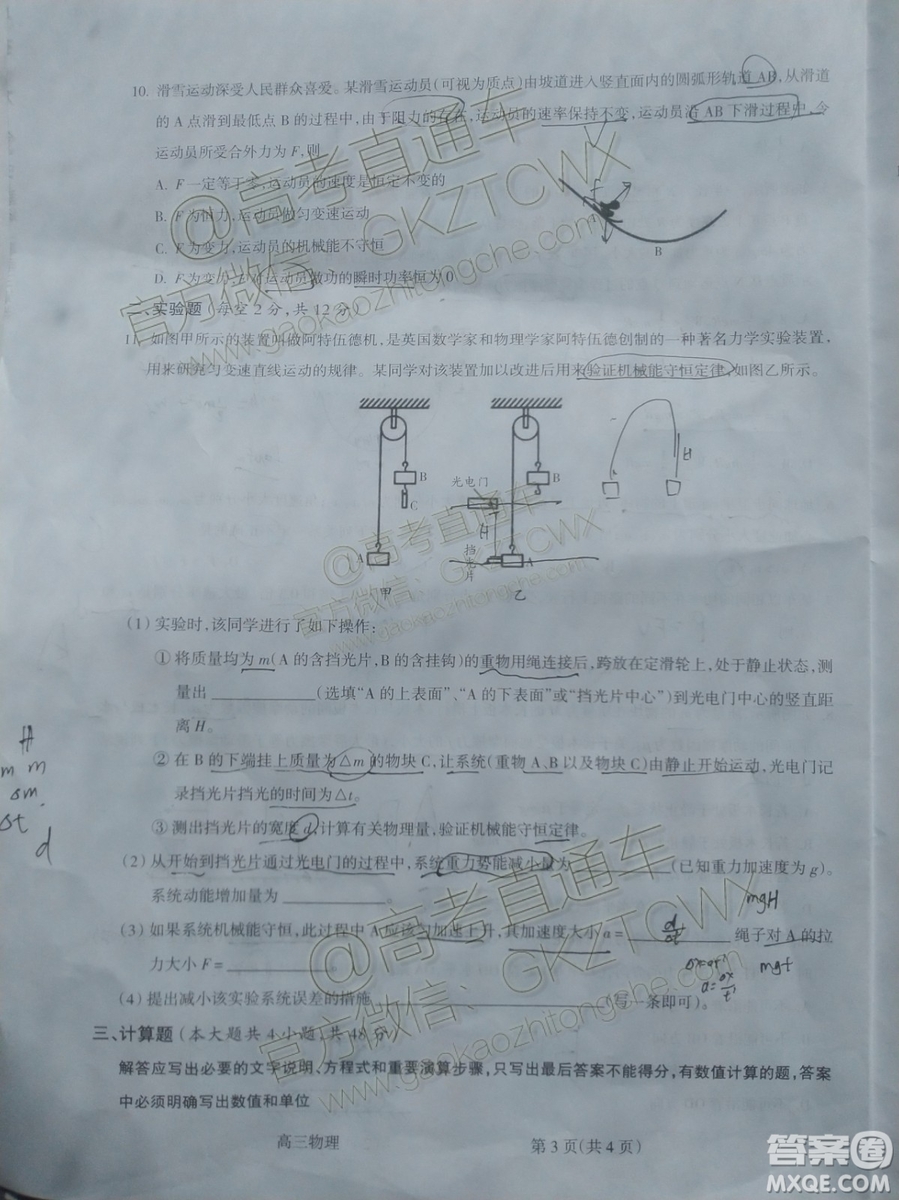 10. 滑雪运动深受人民群众喜爱。某滑雪运动员(可视为质点)由坡道进入竖直面内的圆弧形轨道 AB,从滑道
的 A 点滑到最低点 B 的过程中,由于阻力的存在,运动员的速率保持不变,运动员沿 AB 下滑过程中,令
运动员所受合外力为 F,则
A. F 一定等于零,运动员的速度是恒定不变的
B. F 为恒力,运动员做匀变速运动
C. F 为变力,运动员的机械能不守恒
D. F 为变力,F 对运动员做功的瞬时功率恒为 0
B
二、实验题(每空 2 分,共 12 分)
11. 如图甲所示的装置叫做阿特伍德机,是英国数学家和物理学家阿特伍德创制的一种著名力学实验装置,
用来研究匀变速直线运动的规律。某同学对该装置加以改进后用来验证机械能守恒定律,如图乙所示。
B
C
A
甲
光电门
H
挡光片
B
A
乙
H
(1) 实验时,该同学进行了如下操作:
① 将质量均为 m(A 的含挡光片,B 的含挂钩)的重物用绳连接后,跨放在定滑轮上,处于静止状态,测
量出 ____________ (选填“A 的上表面”、“A 的下表面”或“挡光片中心”)到光电门中心的竖直距
离 H。
② 在 B 的下端挂上质量为△m 的物块 C,让系统(重物 A、B 以及物块 C)由静止开始运动,光电门记
录挡光片挡光的时间为△t。
③ 测出挡光片的宽度 d,计算有关物理量,验证机械能守恒定律。
H
m m
△m
△t
d
(2) 从开始到挡光片通过光电门的过程中,系统重力势能减小量为 ____________ (已知重力加速度为 g)。
系统动能增加量为 ____________。
mgH
(3) 如果系统机械能守恒,此过程中 A 应该匀加速上升,其加速度大小 a = ____________ 绳子对 A 的拉
力大小 F = ____________。
(4) 提出减小该实验系统误差的措施 ____________ (写一条即可)。
三、计算题(本大题共 4 小题,共 48 分)
解答应写出必要的文字说明、方程式和重要演算步骤,只写出最后答案不能得分,有数值计算的题,答案
中必须明确写出数值和单位
高三物理 第 3 页(共 4 页)
@高考直通车
官方微信：GKZTCWX
www.gaokaozhitongche.com
@高考直通车
官方微信：GKZTCWX
www.gaokaozhitongche.com
@高考直通车
官方微信：GKZTCWX
www.gaokaozhitongche.com
答案圈
MXQE.COM